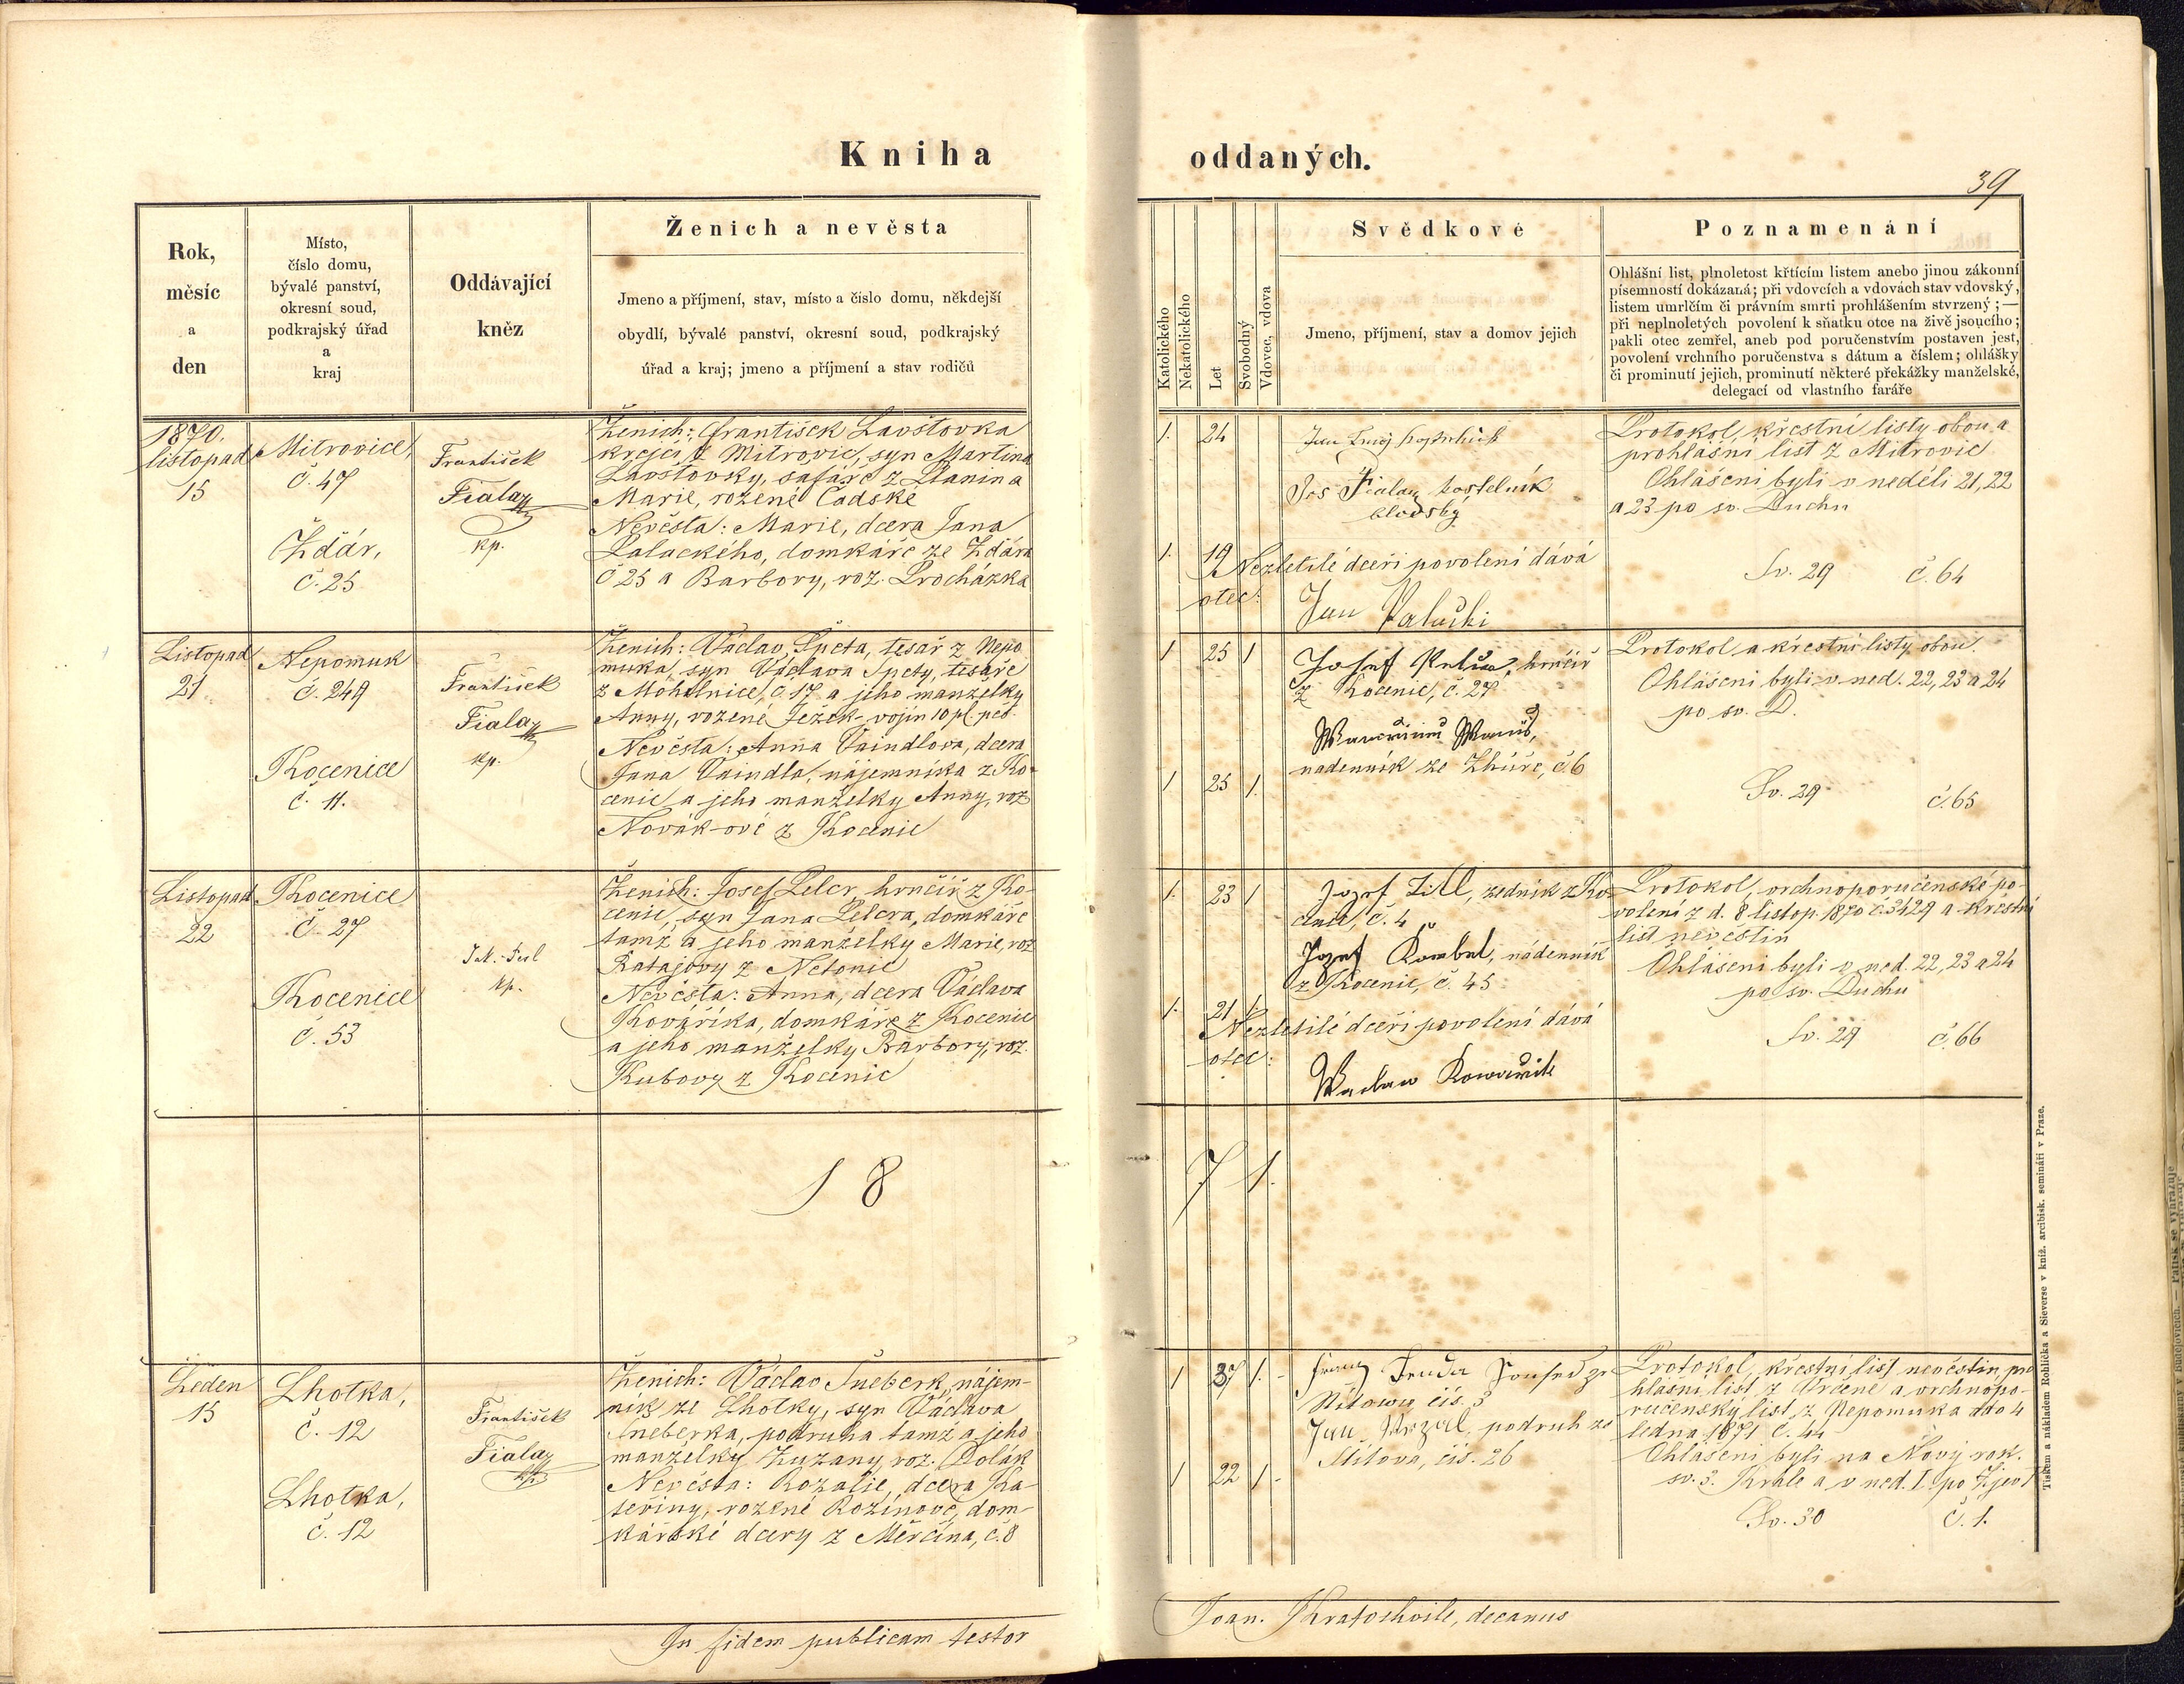 Kniha oddaných.
39
Rok,
měsíc
a
den
Místo,
číslo domu,
bývalé panství,
okresní soud,
podkrajský úřad
a
kraj
Oddávající
kněz
Ženich a nevěsta
Jmeno a příjmení, stav, místo a číslo domu, někdejší
obydlí, bývalé panství, okresní soud, podkrajský
úřad a kraj; jmeno a příjmení a stav rodičů
Katolického
Nekatolického
Let
Svobodný
Vdovec, vdova
Svědkové
Jmeno, příjmení, stav a domov jejich
Poznamenání
Ohlášní list, plnoletost křtícím listem anebo jinou zákonní
písemností dokázaná; při vdovcích a vdovách stav vdovský,
listem umrlčím či právním smrti prohlášením stvrzený; —
při neplnoletých povolení k sňatku otce na živě jsoucího;
pakli otec zemřel, aneb pod poručenstvím postaven jest,
povolení vrchního poručenstva s dátum a číslem; ohlášky
či prominutí jejich, prominutí některé překážky manželské,
delegací od vlastního faráře
1870.
listopad
15
Mitrovice,
č. 47
Ždár,
č. 25
František
Fiala
kp.
Ženich: František Lavštovka
krejčí z Mitrovic, syn Martina
Lavštovky, šafáře z Planin a
Marie, rozené Čadské
Nevěsta: Marie, dcera Jana
Paluckého, domkáře ze Ždára
č 25 a Barbory, roz. Procházka
1. 24
Jan
Jos Fiala kostelník
blovský
1. 19
Nezletilé dceři povolení dává
otec:
Jan Palucki
Protokol, křestní listy obou a
prohlášní list z Mitrovic
Ohlášeni byli v neděli 21, 22
a 23 po sv. Duchu
Sv. 29 č. 64
Listopad
21
Nepomuk
č. 249
Kocenice
č. 11.
František
Fiala
kp.
Ženich: Václav Špeta, tesař z Nepo
muka, syn Václava Špety, tesaře
z Mohelnice, č. 17 a jeho manželky
Anny, rozené Ježek - vojín 10 pl. pěš.
Nevěsta: Anna Vaindlova, dcera
Jana Vaindla, nájemníka z Ko-
cenic a jeho manželky Anny, roz
Novák-ové z Kocenic
1 25 1
Josef hrnčíř
z Kocenic, č. 27
nadenník ze Zhůře, č. 6
1 25 1.
Protokol a křestní listy obou.
Ohlášeni byli v ned. 22, 23 a 24
po sv. D.
Sv. 29 č. 65
Listopad
22
Kocenice
č. 27
Kocenice
č. 53
kp.
Ženich: Josef Pelcr, hrnčíř z Ko-
cenic, syn Jana Pelcra, domkáře
tamž a jeho manželky Marie, roz
Ratajovy z Netonic
Nevěsta: Anna, dcera Václava
Kováříka, domkáře z Kocenic
a jeho manželky Barbory, roz.
Kubovy z Kocenic
1. 23 1
Jozef Littl, zedník z Ko-
cenic, č. 4
Jozef nádenník
z Kocenic, č. 45
1. 21 1.
Nezletilé dceři povolení dává
otec:
Waclaw Kowarzik
Protokol, vrchnoporučenské po-
volení z d. 8 listop. 1870 č. 3429 a křestní
list nevěstin
Ohlášeni byli v ned. 22, 23 a 24
po sv. Duchu
Sv. 29 č. 66
1 8 7 1.
Leden
15
Lhotka,
č. 12
Lhotka,
č. 12
František
Fiala
Ženich: Václav Šneberk, nájem-
ník ze Lhotky, syn Václava
Šneberka, podruha tamž a jeho
manželky Zuzany, roz. Polák
Nevěsta: Rozalie, dcera Ka-
teřiny, rozené Rozínové, dom-
kářské dcery z Měrčína, č. 8
1 37 1. -
Franz čís. 3
Jan podruh ze
Mítova, čís. 26
1 22 1 -
Protokol, křestní list nevěstin, pro
hlásní list z Vrčeně a vrchnopo-
ručenský list z Nepomuka ddo 4
ledna 1871 č. 44
Ohlášeni byli na Nový rok.
sv. 3. Krále a v ned. I. po Zjev
Sv. 30 č. 1.
In fidem publicam testor Joan. Kratochvile, decanus
Tiskem a nákladem Rohlíčka a Sieverse v kníž. arcibisk. semináři v Praze.